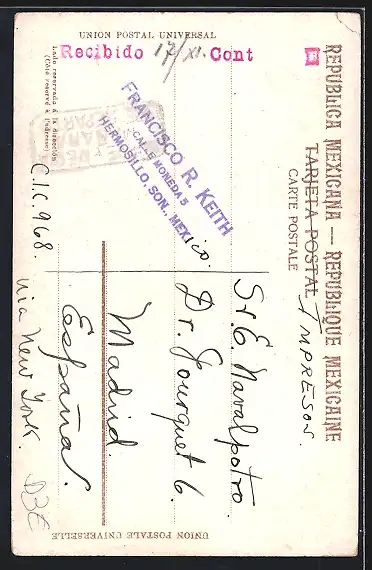 UNION POSTAL UNIVERSAL
REPUBLICA MEXICANA — REPUBLIQUE MEXICAINE
TARJETA POSTAL IMPRESOS.
CARTE POSTALE
Recibido 17/XI. Cont
Lado reservado á la dirección
(Côté réservé à l'adresse)
FRANCISCO R. KEITH
CALLE MONEDA 5
HERMOSILLO, SON., MEXico.
Sr. E. Navalpotro.
Dr. Fourquet 6.
Madrid.
España.
C.I.C. 968.
via New York.
UNION POSTALE UNIVERSELLE